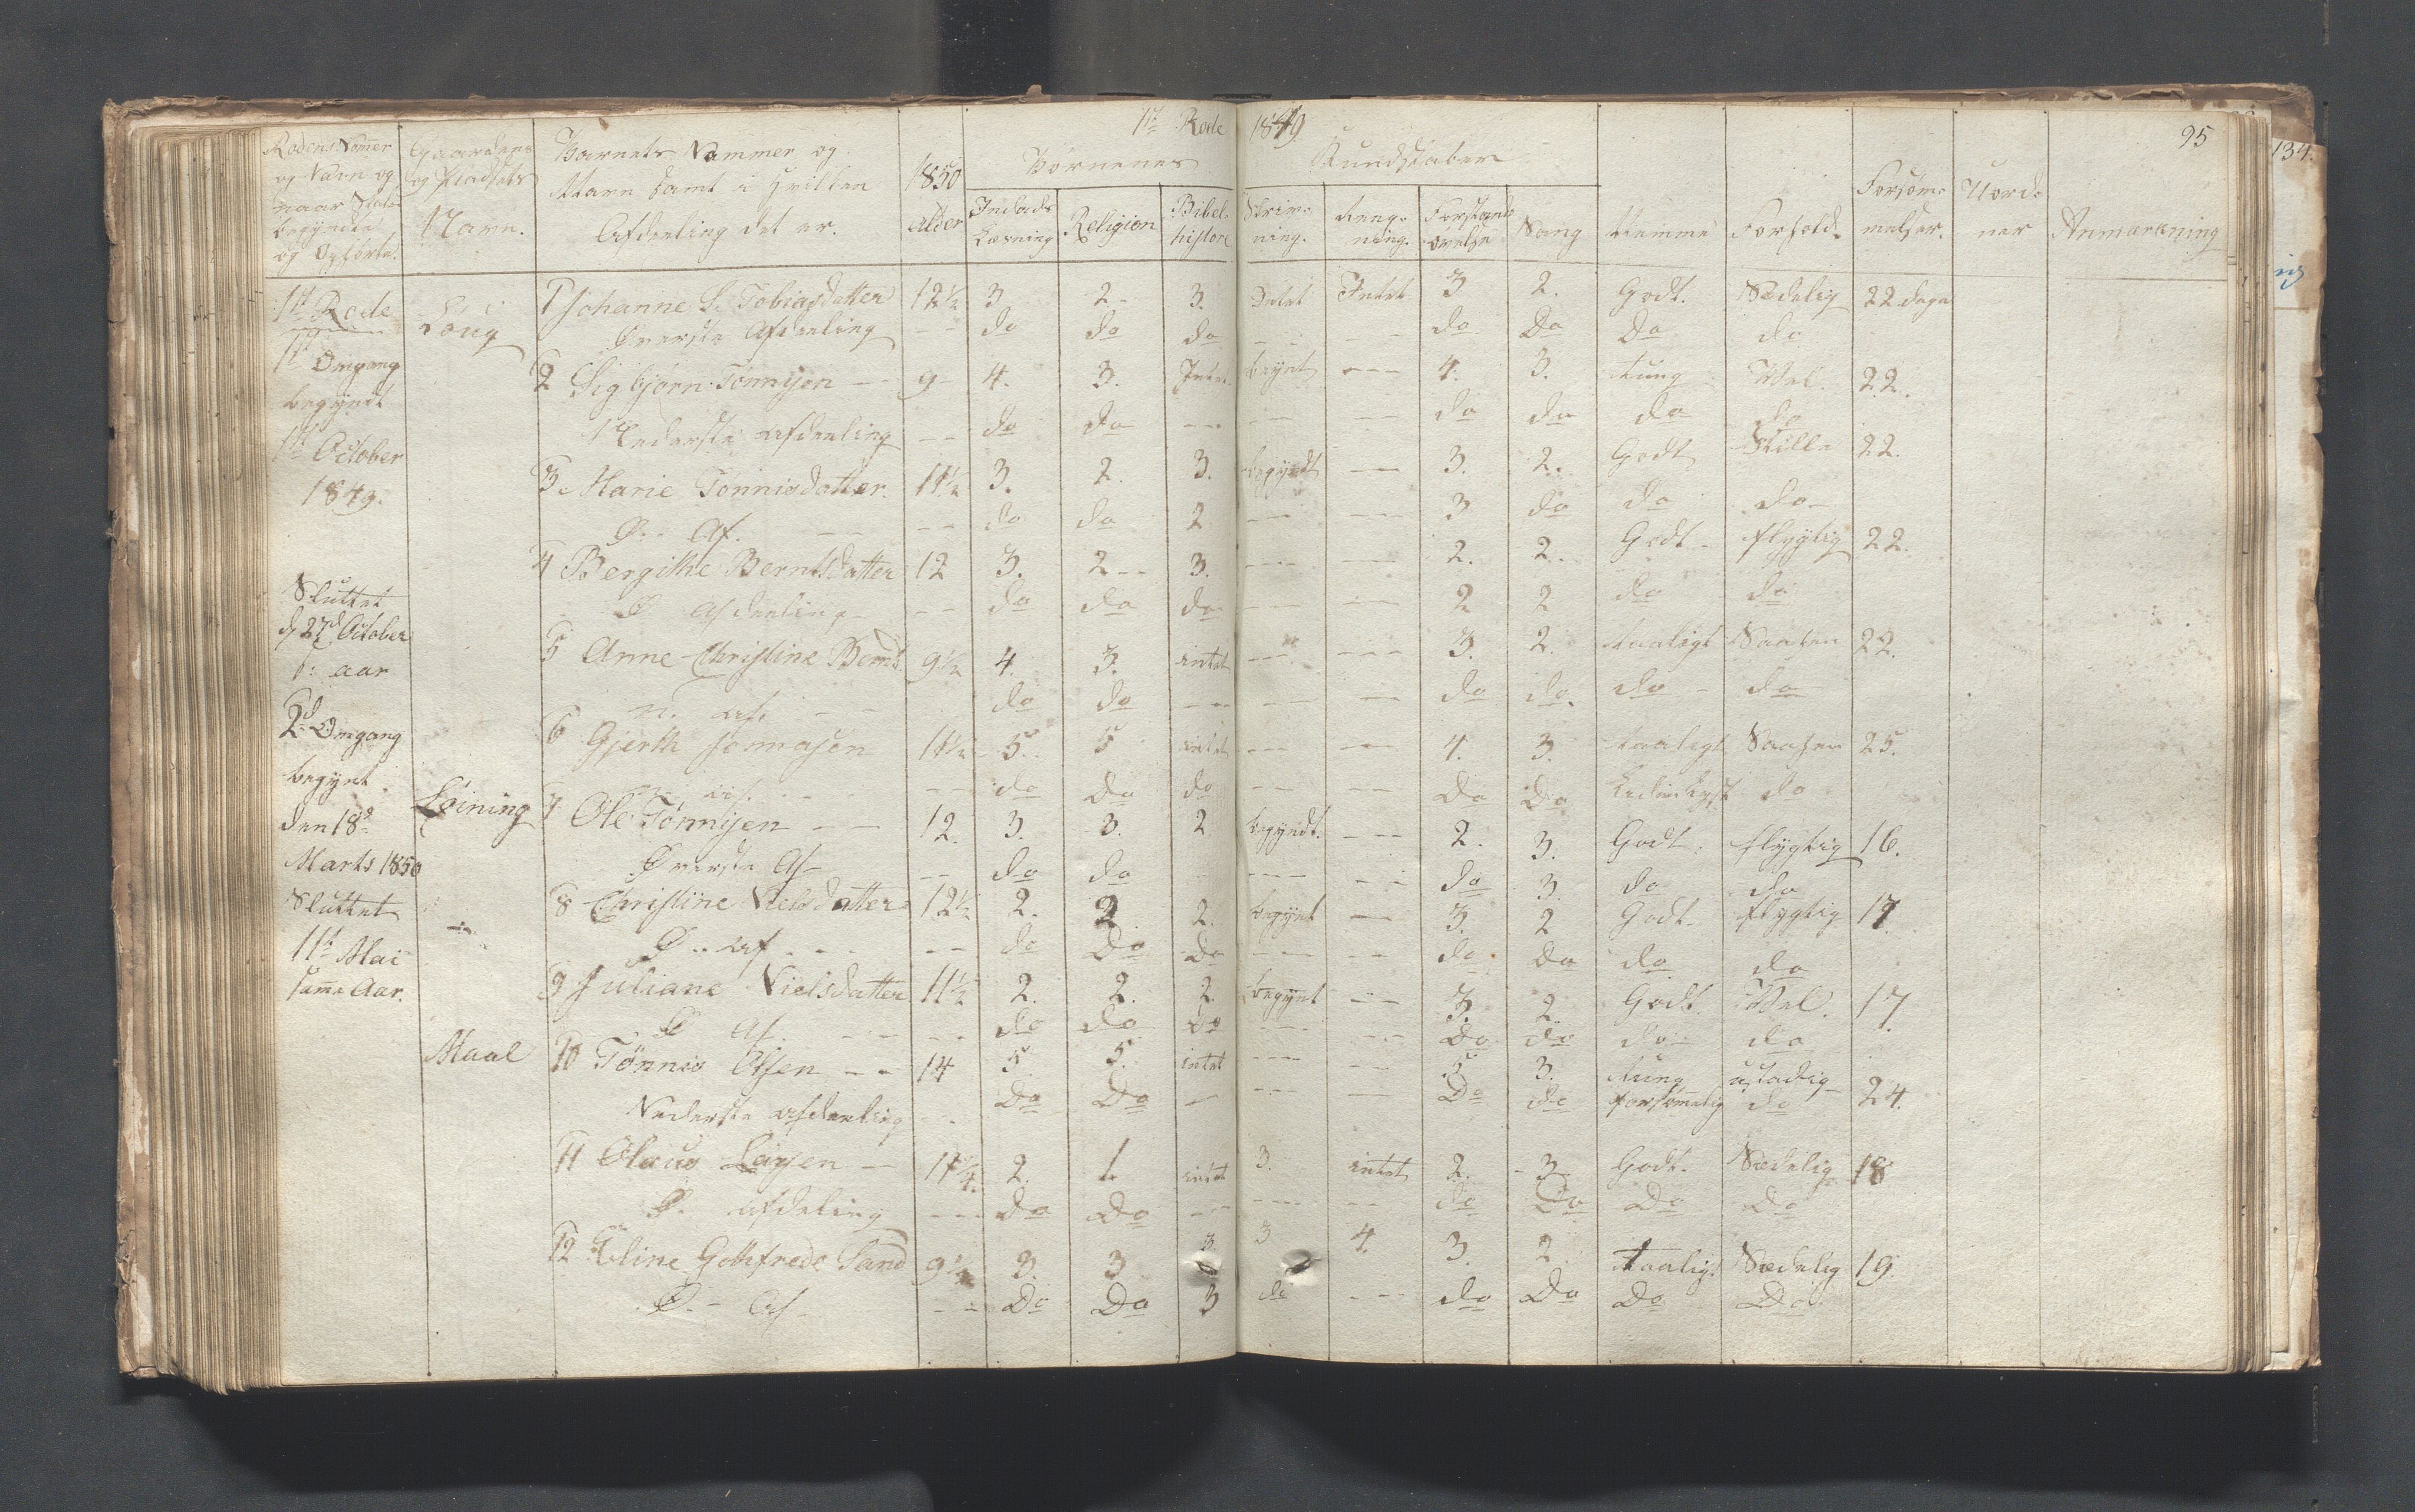 1ste Rode 1849. 95
Rodens Nummer og Navn og naar Skolen begyndte og Ophørte. | Gaardens og Pladsets Navn. | Barnets Nummer og Navn samt i hvilken Afdeling det er. | 1850 Alder | Børnenes Kundskaber | Nemme | Forhold. | Forsømmelser. | Uordner | Anmærkning
Indads Læsning | Religion | Bibelhistore | Skrivning. | Regning. | Forstands øvelse | Sang
1ste Rode | 1 Johanne S. Tobiasdatter | 12½ | 3 | 2 | 3. | Intet | Intet | 3 | 2. | Godt. | Sædelig | 22 dage
Øverste Afdeeling | -- | do | do | do | -- | -- | do | Do | Do | do
1st Omgang | 2 Sigbjørn Tønnesen -- | 9 | 4. | 3. | Intet | begynt | --- | 4. | 3. | tung | Vel. | 22.
begyndt
Nederste afdeeling | -- | do | do | --- | -- | -- | do | do | do | do
1st October | 3 Marie Tønnisdatter. | 11½ | 3. | 2. | 3. | begyndt | --- | 3. | 2. | Godt | Stille | 22.
1849.
Ø. Af. | -- | do | do | 2 | --- | --- | 3 | do | do | do
4 Bergithe Berntsdatter | 12 | 3. | 2 -- | 3. | --- | --- | 2. | 2. | Godt | flygtig | 22.
Sluttet | Ø Afdeeling | -- | do | do | do | --- | --- | 2 | 2 | do | do
d. 27d October
s: aar | 5 Anne Christine Bernts | 9½ | 4. | 3. | intet | --- | --- | 3. | 2. | taaligt | Saasen | 22.
n. af. -- | do | do | --- | --- | --- | do | do. | do | do
2d Omgang | 6 Gjerth Jonnasen | 11½ | 5. | 5 | intet | --- | --- | 4. | 3. | taaligt | Saasen | 25.
begynt | -- | do | Do | do | -- | -- | Do | Do | do
den 18d | Löining | 7 Ole Tønnisen -- | 12. | 3. | 3. | 2 | begyndt. | --- | 2. | 3. | Godt. | flygtig | 16.
Marts 1850 | Øverste Af | -- | do | do | --- | --- | do | 3. | do | do
Sluttet | 8 Christine Nielsdatter | 12½ | 2. | 2 | 2. | begynt | --- | 3. | 2 | Godt | flygtig | 17.
11t Mai | Ø .. af. -- | -- | do | Do | Do | --- | -- | do | do | do | do
samme Aar. | 9 Juliane Nielsdatter | 11½ | 2. | 2. | 2. | begynt | -- | 3. | 2. | Godt. | Vel. | 17.
Ø Af. | -- | do | do | Do | --- | --- | Do | do | do | do
Maal | 10 Tönnis Olsen -- | 14 | 5. | 5. | intet | --- | 5 | 3. | tung | ustadig
Nederste afdeeling | -- | Do | Do | -- | --- | --- | Do | do | forsømelig | do | 24.
11 Olaus Larsen -- | 2. | 1. | intet | 3. | intet | 2. | 3. | Godt. | Sædelig | 18
Ø. afdeling | --- | Do | Do | -- | --- | -- | do | Do | Do | Do
12 Eline Gothfrede Sand | 9½ | 3. | 3 | 3. | 3 | 4. | 3. | 2. | taalig. | Sædelig | 19.
Ø. - Af | --- | Do | Do | 3 | do | --- | do | Do | Do | Do
134.